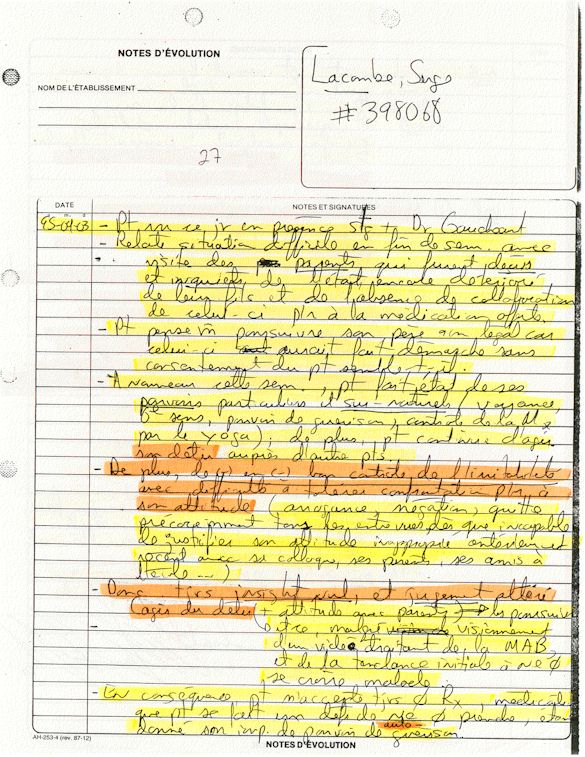 NOTES D'ÉVOLUTION
NOM DE L'ÉTABLISSEMENT
Lacombe, Serge
# 398068
27
DATE NOTES ET SIGNATURES
95-01-03 - Pt vu ce jr en présence stg + Dr
- Relate situation difficile en fin de sem. avec
visite des parents qui furent déçus
et inquiets de l'état encore détérioré
de leur fils et de l'absence de collaboration
de celui-ci p/r à la médication offerte
- Pt pense m̂ poursuivre son père légal car
celui-ci aurait fait démarche sans
consentement du pt semble-t-il.
- A nouveau cette sem., pt fait état de ses
pouvoirs particuliers et sur-naturels (voyance,
6e sens, pouvoir de guérison, contrôle de la
par le yoga); de plus, pt continue d'agir
son délire auprès d'autre pts.
- De plus, de (+) en (-) bon contrôle de l'irritabilité
avec difficulté à tolérer confrontation p/r à
son attitude (arrogance, négation, quitte
précocement tous les entrevues dès que incapable
de justifier son attitude inappropriée antérieur et
récent avec sa ses parents, ses amis à
)
- Donc tjrs insight nul, et jugement altéré
(agis du délire) (+ attitude avec parents les poursuivre
- être, malgré visionnement
d'un vidéo traitant de la MAB
et de la tendance initiale à ne ∅
se croire malade.
- En conséquence pt n'accepte tjrs ∅ Rx, médicale
que pt se fait un défi de ∅ prendre, étant
donné son imp. de pouvoir de auto-guérison.
AH-253-4 (rev. 87-12)
NOTES D'ÉVOLUTION